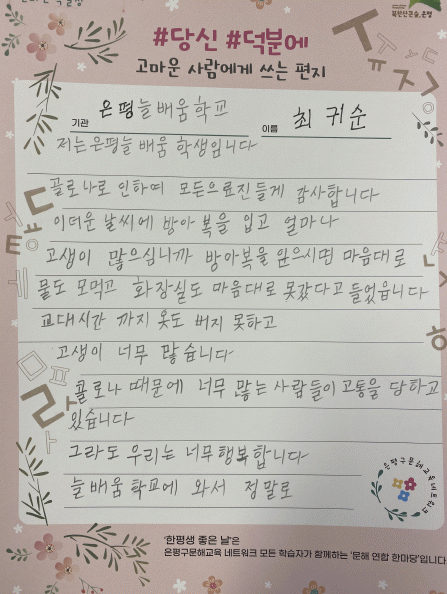 북한산 큰숲, 은평
#당신 #덕분에
고마운 사람에게 쓰는 편지
기관 은평늘배움학교 이름 최귀순
저는 은평늘 배움 학생입니다
콜로나로 인하여 모든으료진들게 감사합니다
이더운 날씨에 방아복을 입고 얼마나
고생이 많으십니까 방아복을 입으시면 마음대로
물도 모먹고 화장실도 마음대로 못갔다고 들었읍니다
교대시간 까지 옷도 버지 못하고
고생이 너무 많습니다
콜로나 때문에 너무 많는 사람들이 고통을 당하고
있습니다
그라도 우리는 너무행복합니다
늘 배움 학교에 와서 정말로
은평구문해교육네트워크
'한평생 좋은 날'은
은평구문해교육 네트워크 모든 학습자가 함께하는 '문해 연합 한마당'입니다